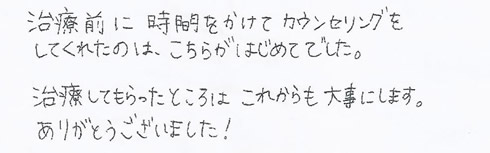 治療前に 時間をかけて カウンセリングを
してくれたのは、こちらがはじめてでした。
治療してもらったところは これからも大事にします。
ありがとうございました!